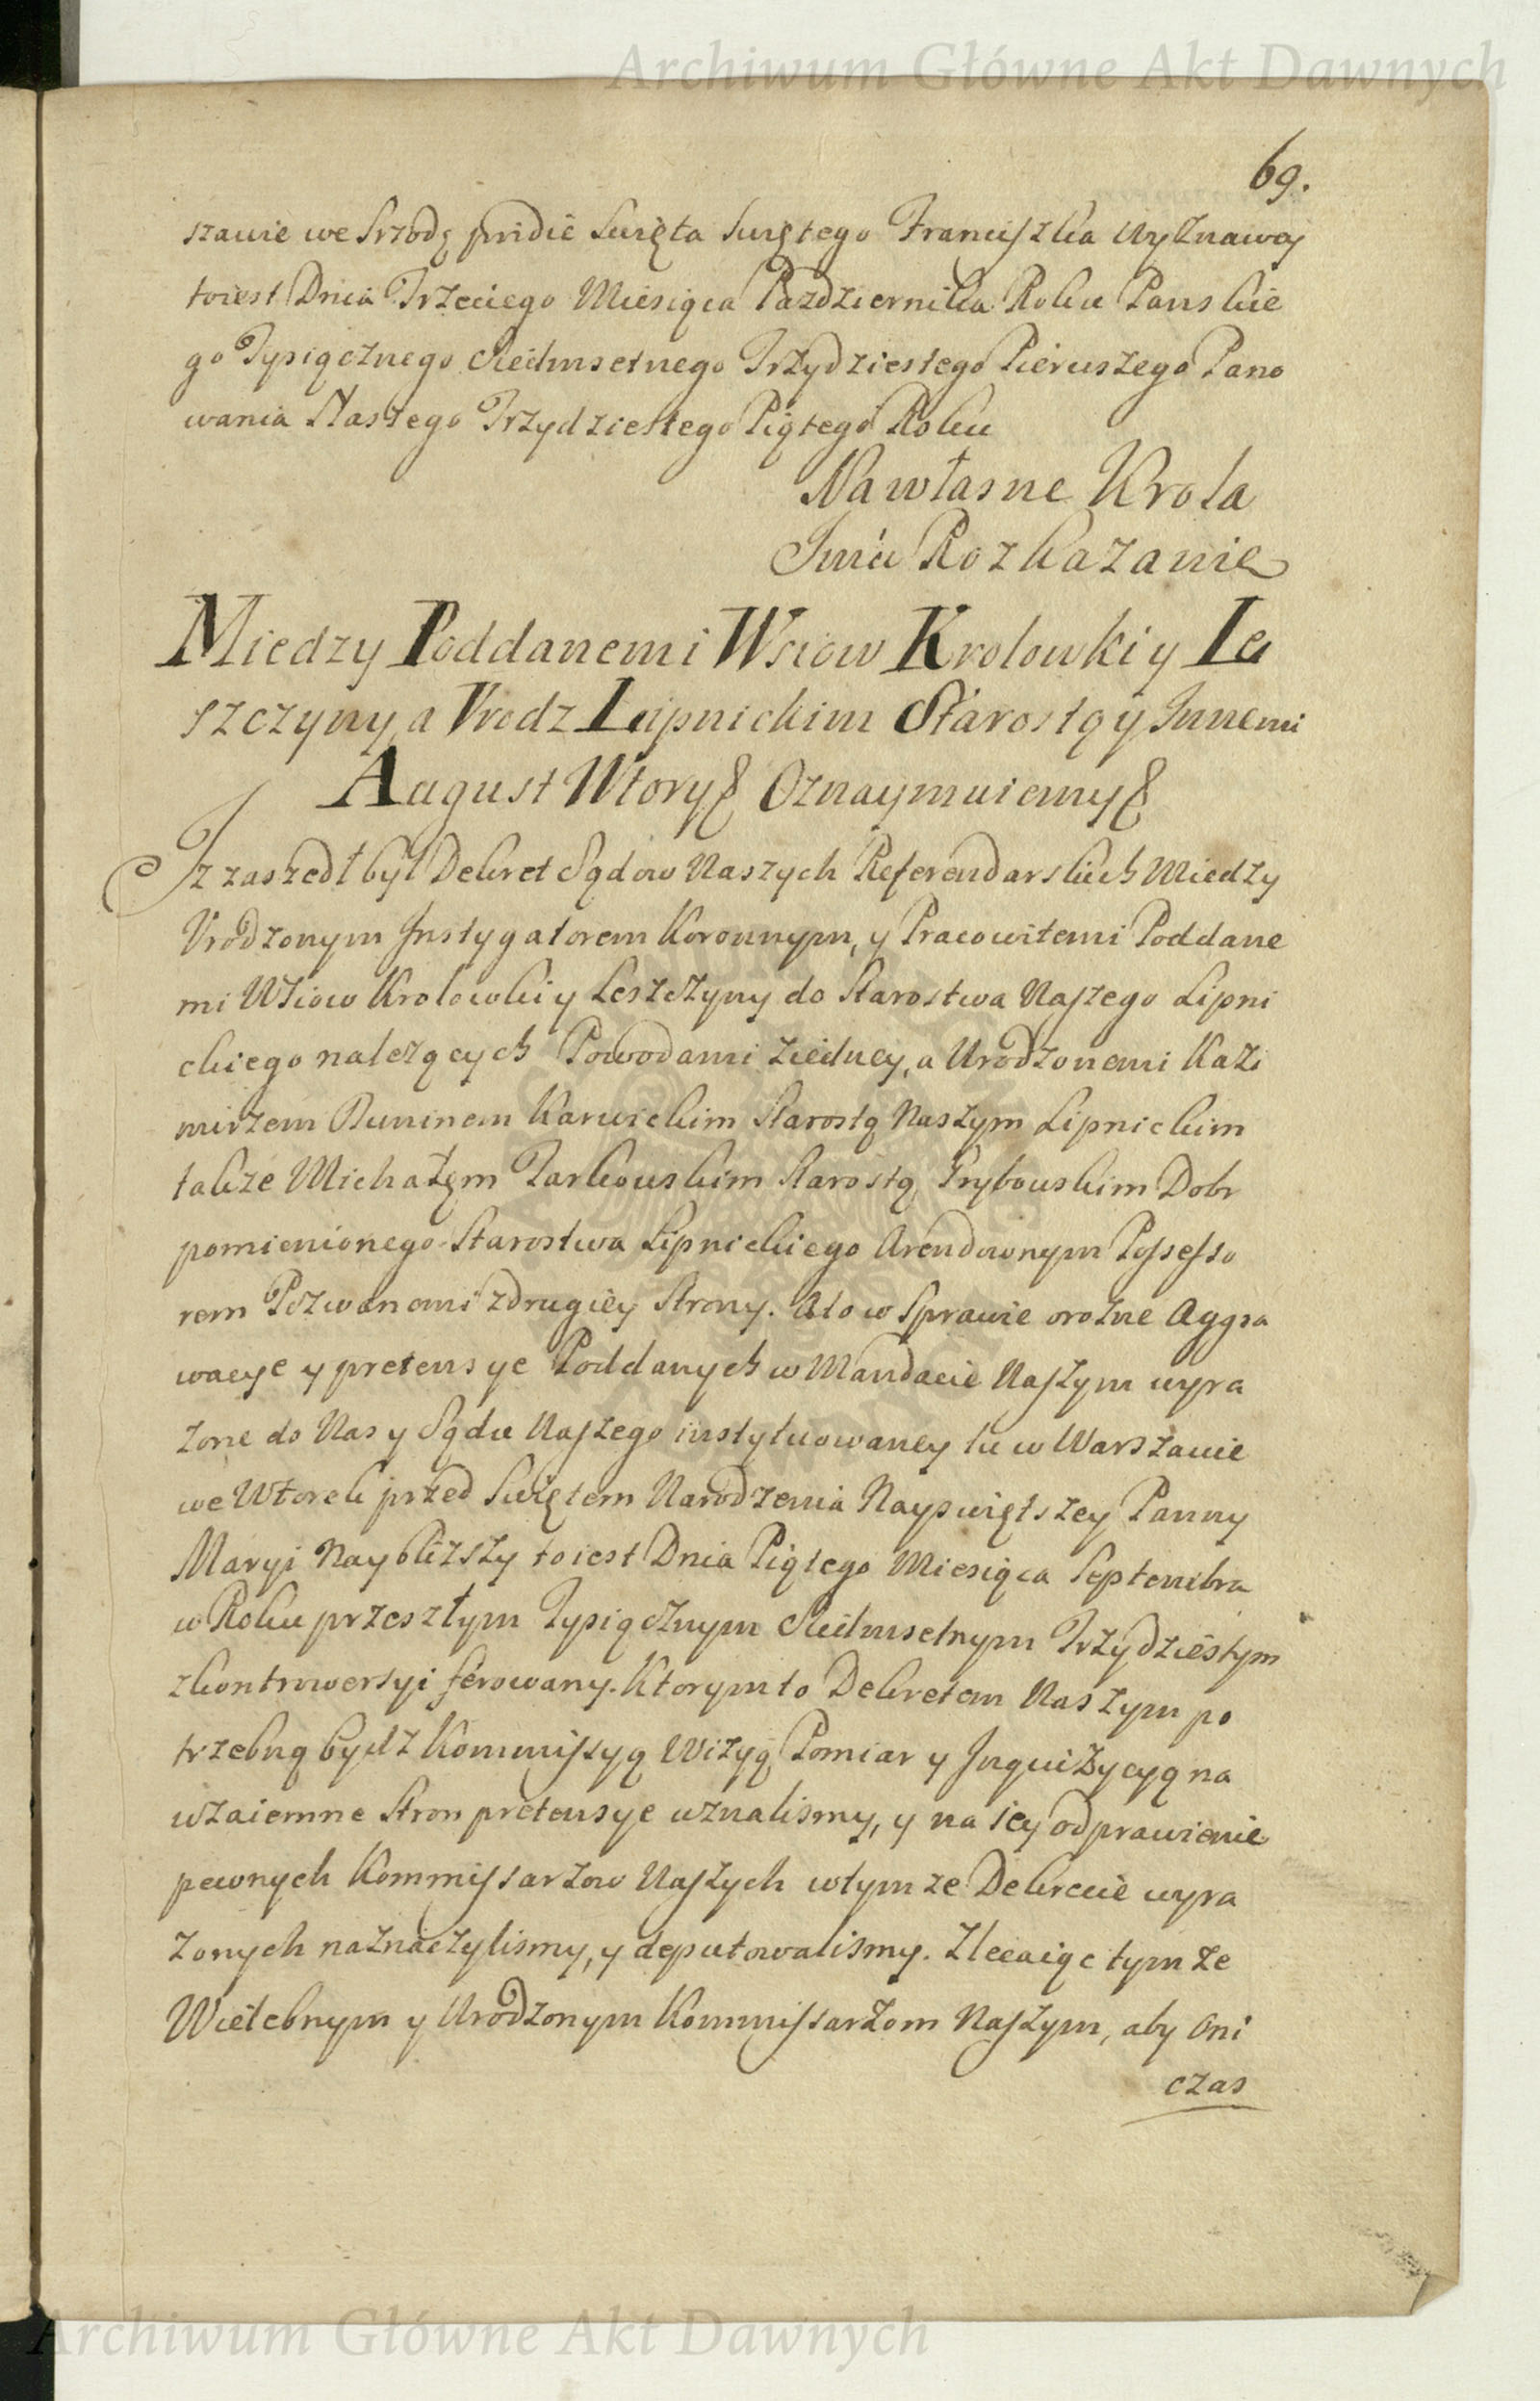 Archiwum Główne Akt Dawnych
69.
szawie we Srzodę pridie Swięta Swiętego Franciszka Wyznawcy
toiest Dnia Trzeciego Miesiąca Pazdziernika Roku Panskie
go Tysiącznego Siedmsetnego Trzydziestego Pierwszego Pano
wania Naszego Trzydziestego Piątego Roku
Na własne Krola
Jmći Rozkazanie
Miedzy Poddanemi Wsiow Krolowki y Le
szczyny a Urodz Lipnickim Starostą y Innemi
August Wtory & Oznaymuiemy &
Iz zaszedł był Dekret Sądow Naszych Referendarskich Miedzy
Urodzonym Instygatorem Koronnym, y Pracowitemi Poddane
mi Wsiow Krolowki y Leszczyny do Starostwa Naszego Lipni
ckiego nalezących Powodami ziedney, a Urodzonemi Kazi
mirzem Duninem Karwickim Starostą Naszym Lipnickim
takze Michałęm Tarkowskim Starostą Grybowskim Dobr
pomienionego Starostwa Lipnickiego Arendownym Possesso
rem Pozwanemi zdrugiey Strony. Ato w Sprawie orozne Aggra
wacye y pretensye Poddanych w Mandacie Naszym wyra
zone do Nas y Sądu Naszego instytuowaney tu w Warszawie
we Wtorek przed Swiętem Narodzenia Nayswiętszey Panny
Maryi Nayblizszy toiest Dnia Piątego Miesiąca Septembra
w Roku przeszłym Tysiącznym Siedmsetnym Trzydziestym
zkontrowersyi ferowany. Ktorym to Dekretem Naszym po
trzebną bydz Kommissyą Wizyą Pomiar y Inquizycyą na
wzaiemne Stron pretensye uznalismy, y na iey odprawienie
pewnych Kommissarzow Naszych wtymze Dekrecie wyra
zonych naznaczylismy, y deputowalismy. Zlecaiąc tymze
Wielebnym y Urodzonym Kommissarzom Naszym, aby Oni
czas
Archiwum Główne Akt Dawnych